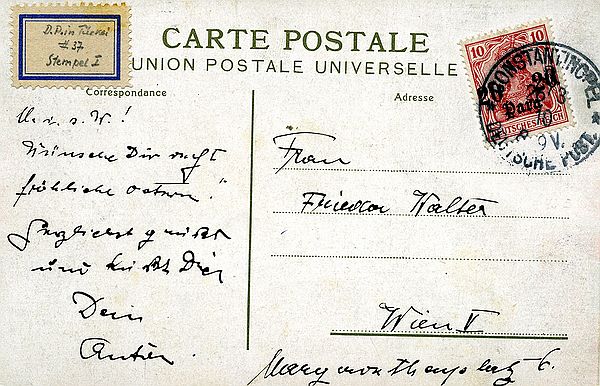 D.P. in Türkei
# 37
Stempel I
CARTE POSTALE
UNION POSTALE UNIVERSELLE
Correspondance
Adresse
10 10
20
Para
DEUTSCHES REICH
CONSTANTINOPEL
9V.
DEUTSCHE POST
Wünsche Dir recht
fröhliche Ostern!
Herzlichst grüsst
und küsst Dich
Dein
Frau
Walter
Wien V